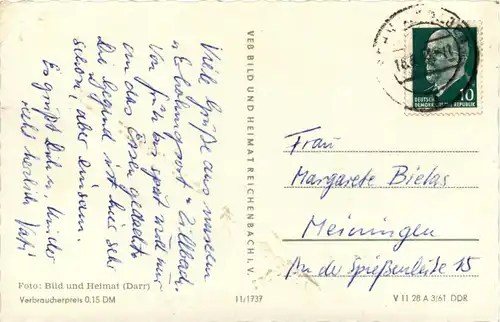 Viele Grüße aus unserem
Erholungsort Zillbach.
Von früh bis spät wird nur
an das Essen gedacht.
Die Gegend ist hier sehr
schön, aber einsam.
Es grüßt Dich u. Kinder
recht herzlich Vati
VEB BILD UND HEIMAT REICHENBACH I. V.
Foto: Bild und Heimat (Darr)
Verbraucherpreis 0,15 DM
11/1737
10
DEUTSCHE
DEMOKRATISCHE REPUBLIK
Frau
Margarete Bielas
Meiningen
An der Spießenleite 15
V 11 28 A 3/61 DDR